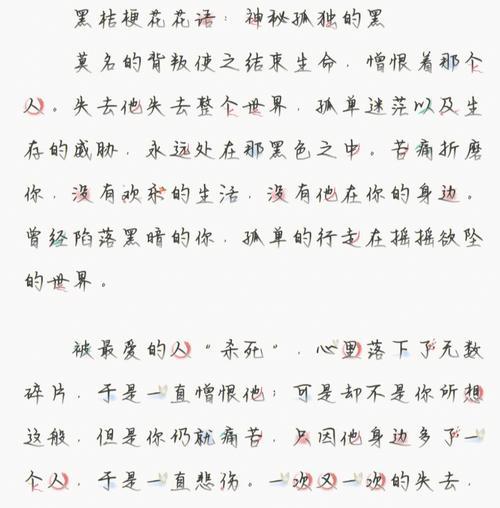 黑桔梗花花语：神秘孤独的黑
莫名的背叛使之结束生命，憎恨着那个
人。失去他失去整个世界，孤单迷茫以及生
存的威胁，永远处在那黑色之中。苦痛折磨
你，没有欢乐的生活，没有他在你的身边。
曾经陷落黑暗的你，孤单的行走在摇摇欲坠
的世界。
被最爱的人“杀死”，心里落下了无数
碎片，于是一直憎恨他；可是却不是你所想
这般，但是你仍就痛苦，只因他身边多了一
个人，于是一直悲伤。一次又一次的失去，